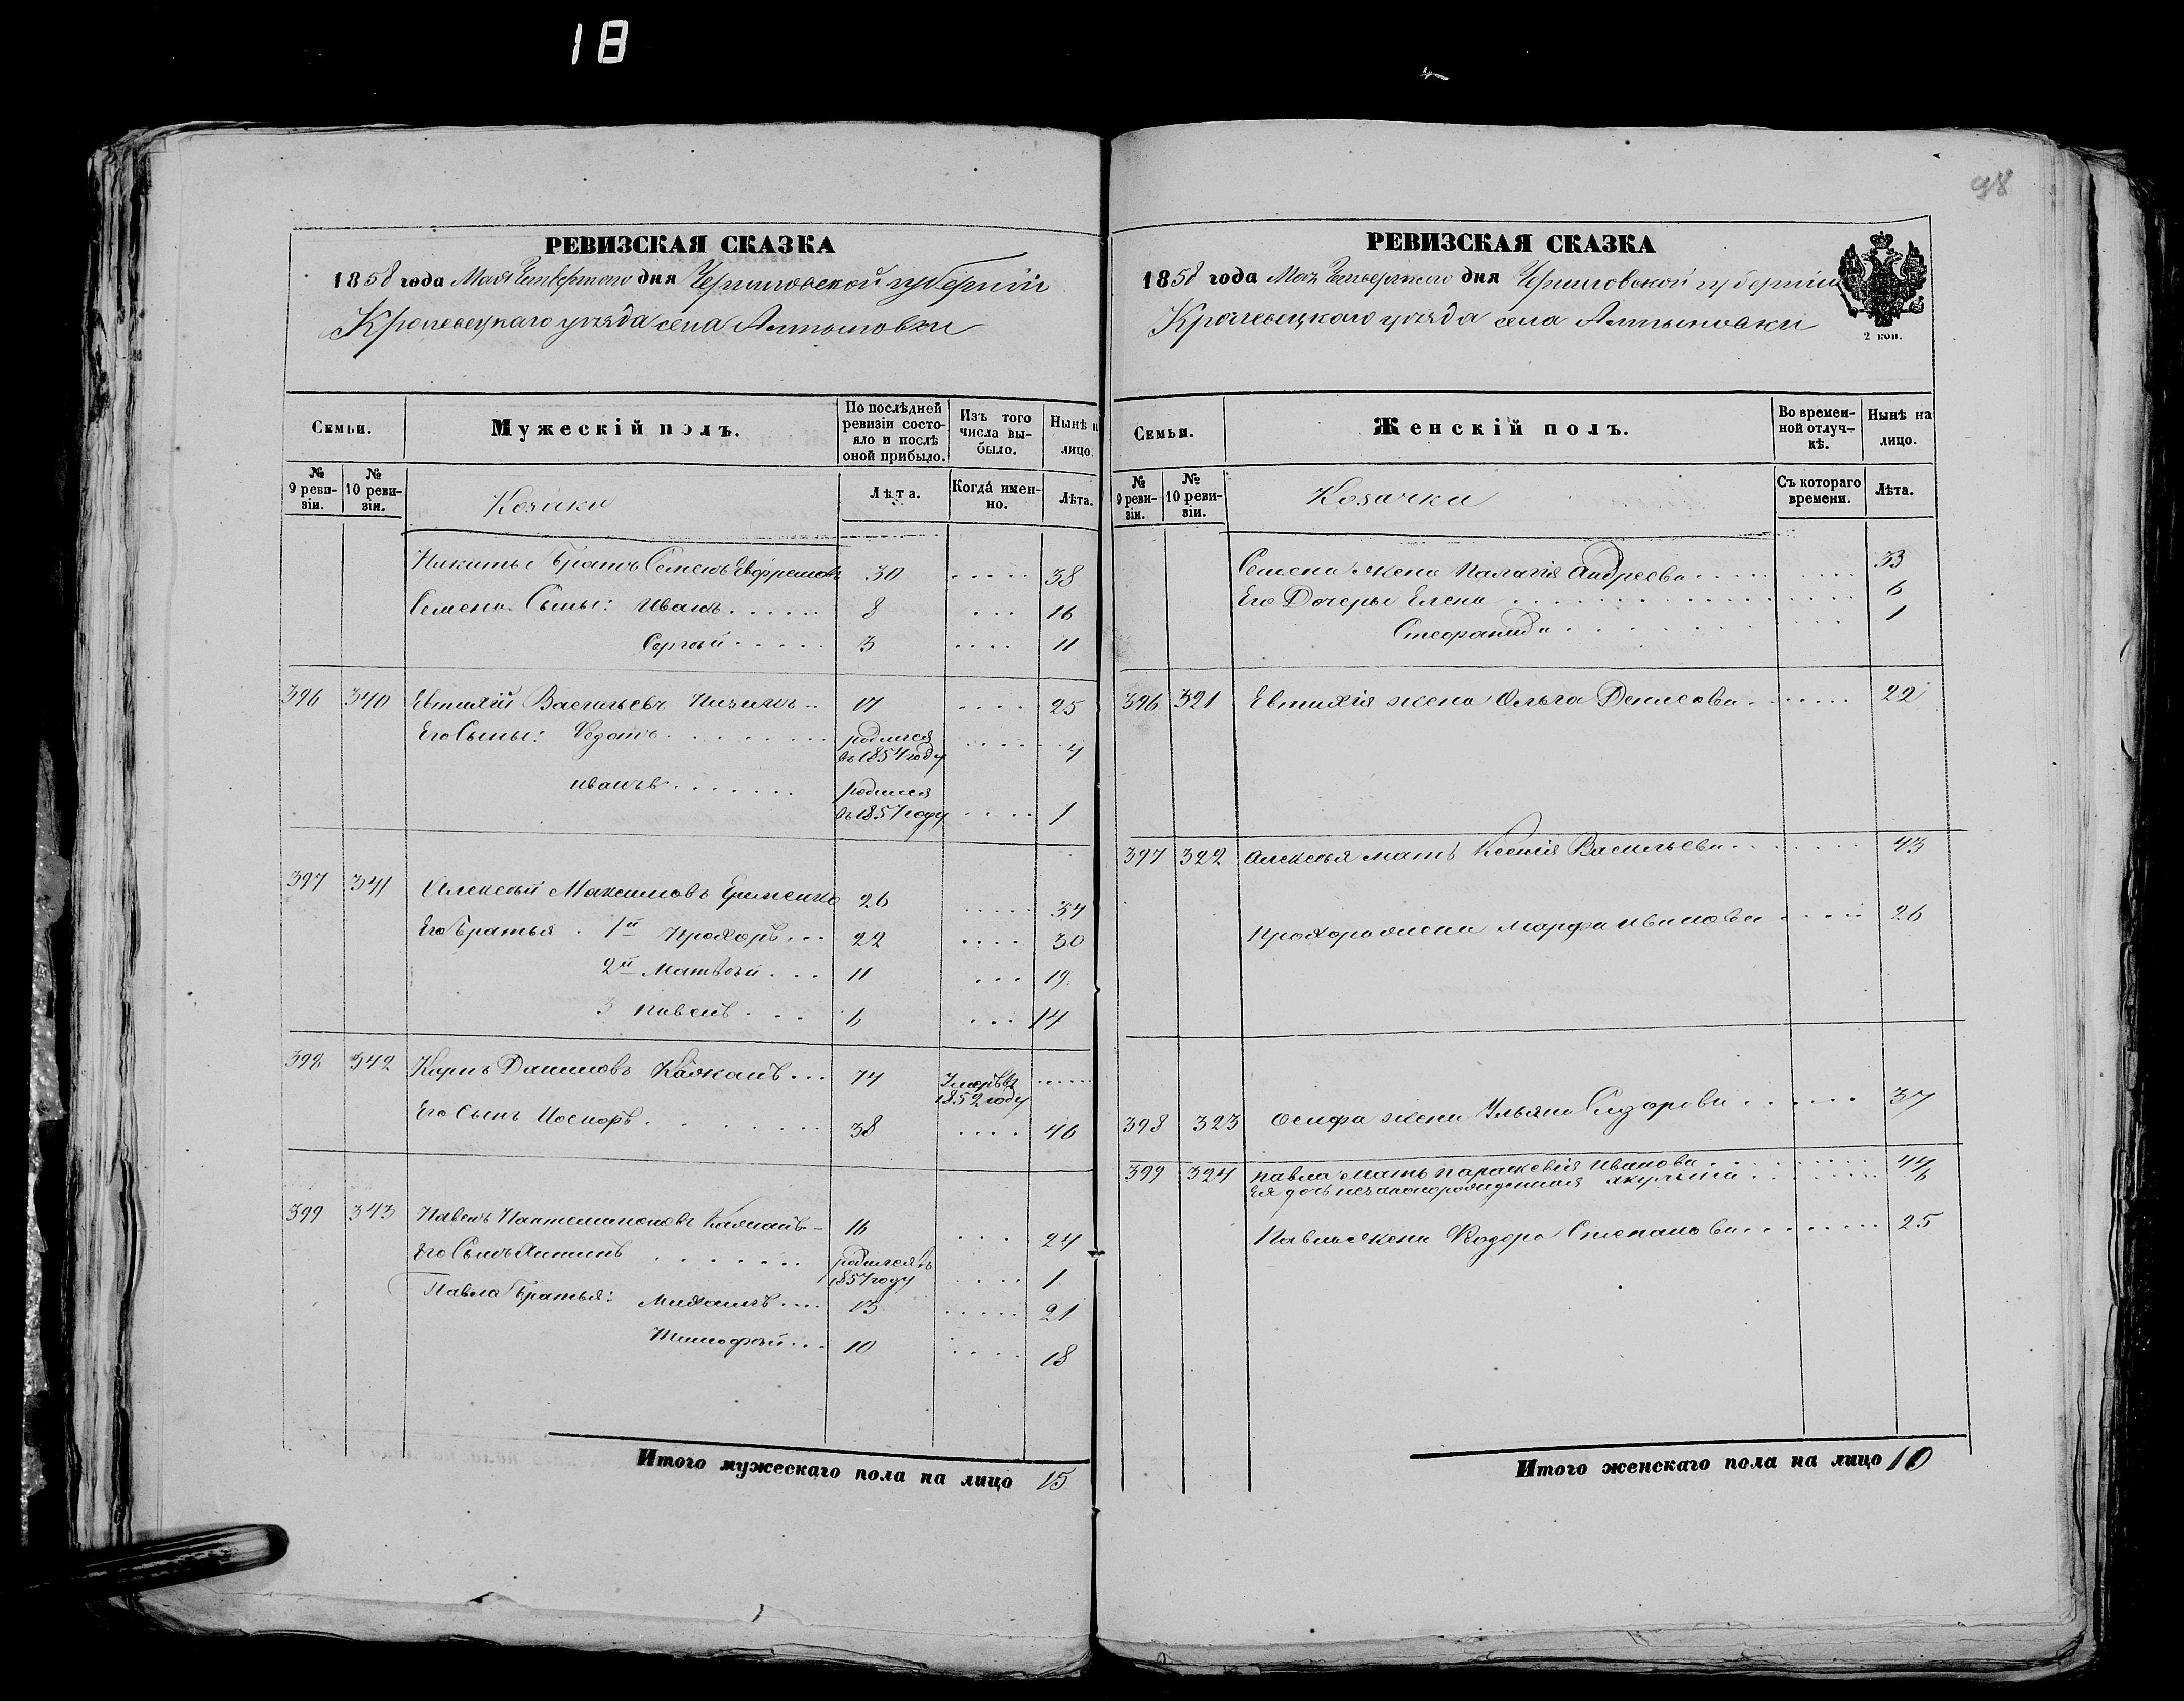 18
98
РЕВИЗСКАЯ СКАЗКА
1858 года Мая Четвертого дня Черниговской губернии
Кролевецкаго уезда села Алтыновки
Семьи.
Мужескій полъ.
По послѣдней ревизіи состояло и послѣ оной прибыло.
Изъ того числа выбыло.
Нынѣ н лицо.
№ 9 ревизіи.
№ 10 ревизіи.
Козаки
Лѣта.
Когда именно.
Лѣта.
Никиты братъ Семенъ Евфремовъ 30 38
Семена Сыны: Иванъ 8 16
Сергѣй 3 11
396 340 Евтихій Васильевъ 17 25
Его Сыны: Федотъ родился въ 1854 году 4
Иванъ родился въ 1857 году 1
397 341 Алексѣй Максимовъ Еременко 26 34
Его братья 1й Прохоръ 22 30
2й Матвѣй 11 19
3 Павелъ 6 14
398 342 Карпъ Даниловъ 74 Умеръ въ 1852 году
Его сынъ 38 46
399 343 Павелъ Пантелимоновъ 16 24
Его Сынъ родился въ 1857 году 1
Павла братья: Михаилъ 13 21
Тимофей 10 18
Итого мужескаго пола на лицо 15
РЕВИЗСКАЯ СКАЗКА
1858 года Мая Четвертого дня Черниговской губерніи
Кролевецкаго уезда села Алтыновки
2 коп.
Семьи.
Женскій полъ.
Во временной отлучкѣ.
Нынѣ на лицо.
№ 9 ревизіи.
№ 10 ревизіи.
Козачки
Съ котораго времени.
Лѣта.
Семена жена Палагія Андреева 33
Его Дочеры Елена 6
Стефанида 1
396 321 Евтихія жена Ольга Денисова 22
397 322 Алексѣя мать Ксенія Васильева 43
Прохора жена Марфа Иванова 26
398 323 Осифа жена Ульяна Сидорова 37
399 324 Павла мать Параскевія Иванова 44
Ея дочь незаконорожденная Акулина 6
Павла жена Федора Степанова 25
Итого женскаго пола на лицо 10